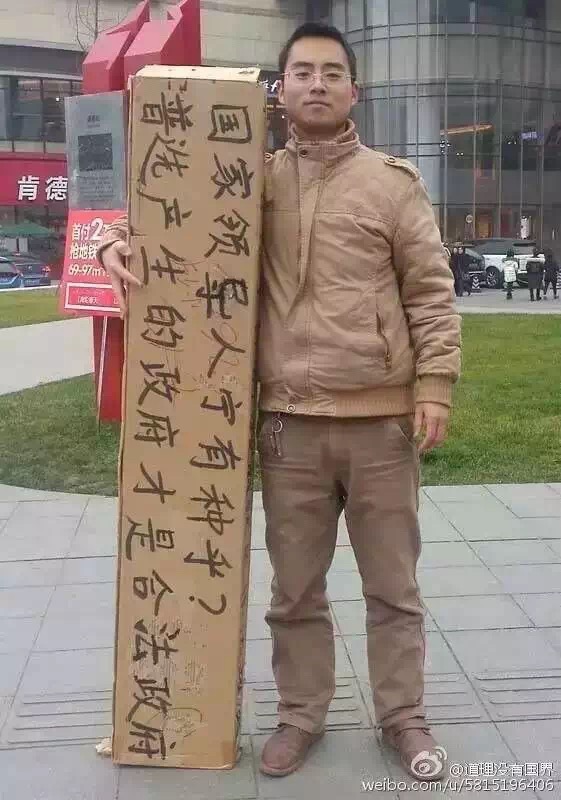 国家领导人宁有种乎?
普选产生的政府才是合法政府
肯德
首付2
抢地铁
69-97m
@道理没有国界
weibo.com/u/5815196406